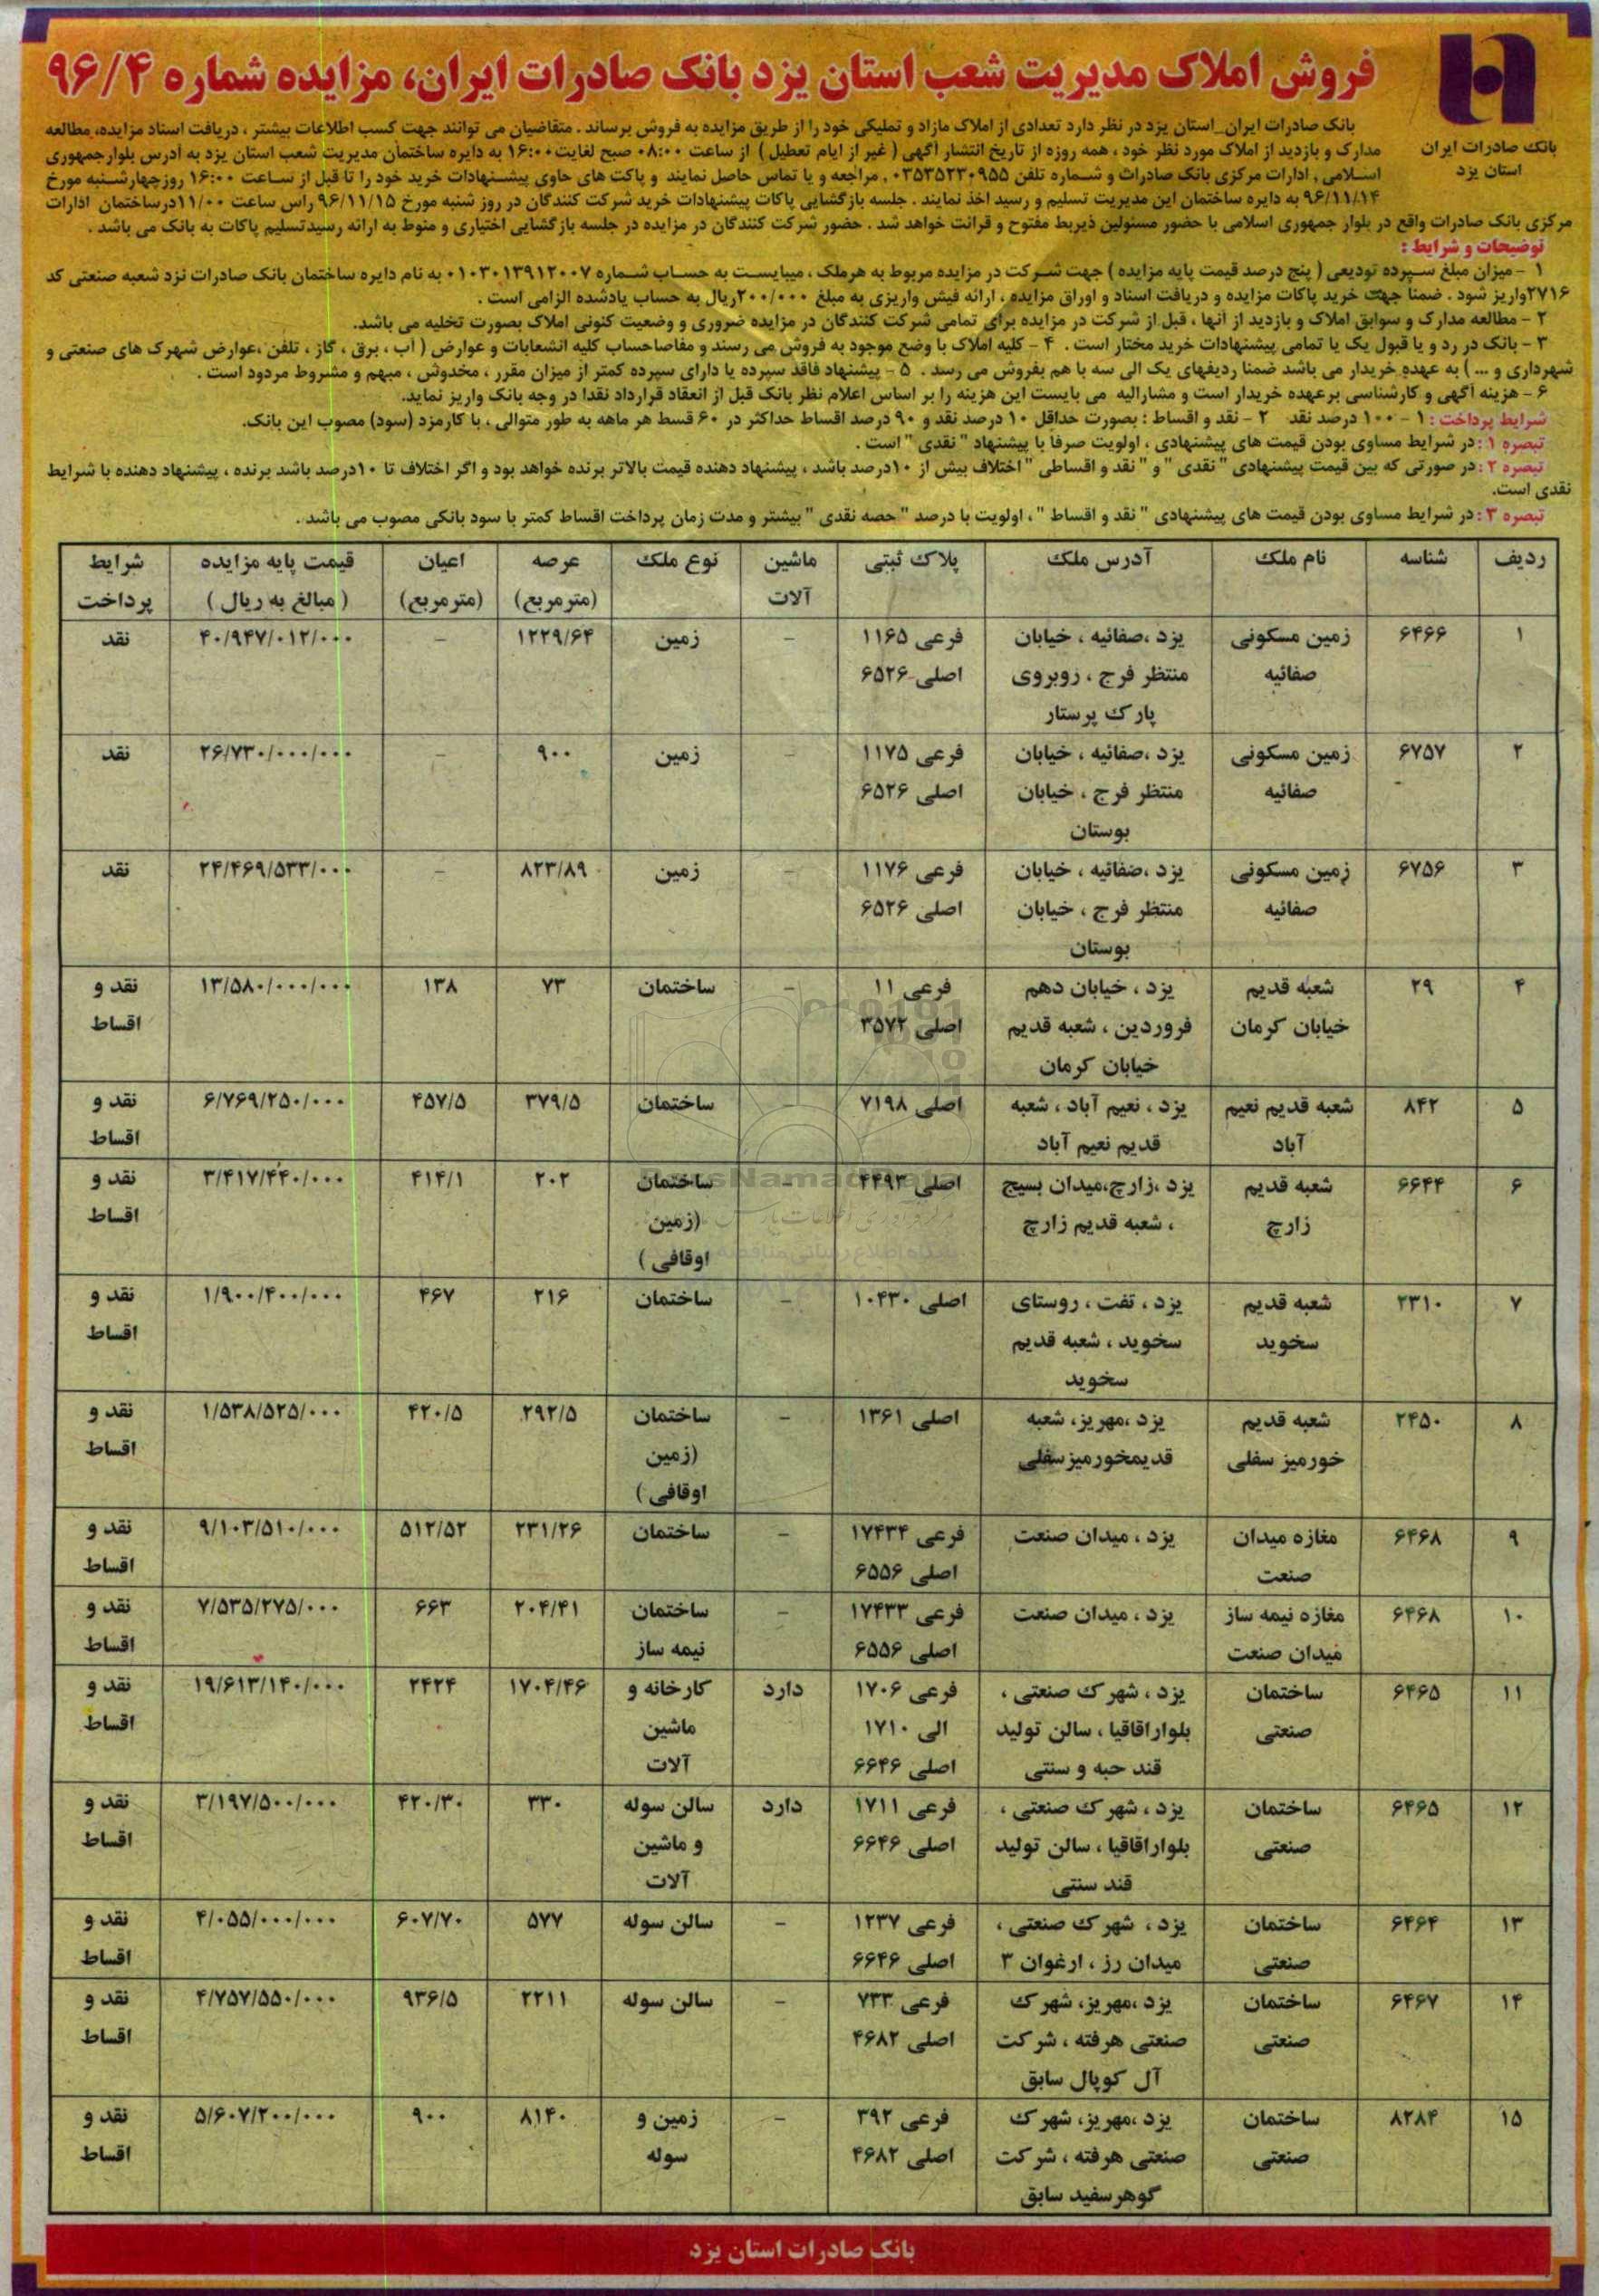 فروش املاک مدیریت شعب استان یزد بانک صادرات ایران، مزایده شماره ۹۶/۴
بانک صادرات ایران
استان یزد
بانک صادرات ایران_استان یزد در نظر دارد تعدادی از املاک مازاد و تملیکی خود را از طریق مزایده به فروش برساند . متقاضیان می توانند جهت کسب اطلاعات بیشتر ، دریافت اسناد مزایده، مطالعه
مدارک و بازدید از املاک مورد نظر خود ، همه روزه از تاریخ انتشار آگهی ( غیر از ایام تعطیل ) از ساعت ۰۸:۰۰ صبح لغایت ۱۶:۰۰ به دایره ساختمان مدیریت شعب استان یزد به آدرس بلوار جمهوری
اسلامی , ادارات مرکزی بانک صادرات و شماره تلفن ۰۳۵۳۵۲۳۰۹۵۵ , مراجعه و یا تماس حاصل نمایند و پاکت های حاوی پیشنهادات خرید خود را تا قبل از ساعت ۱۶:۰۰ روز چهارشنبه مورخ
۹۶/۱۱/۱۴ به دایره ساختمان این مدیریت تسلیم و رسید اخذ نمایند . جلسه بازگشایی پاکات پیشنهادات خرید شرکت کنندگان در روز شنبه مورخ ۹۶/۱۱/۱۵ راس ساعت ۱۱/۰۰ درساختمان ادارات
مرکزی بانک صادرات واقع در بلوار جمهوری اسلامی با حضور مسئولین ذیربط مفتوح و قرائت خواهد شد . حضور شرکت کنندگان در مزایده در جلسه بازگشایی اختیاری و منوط به ارائه رسیدتسلیم پاکات به بانک می باشد .
توضیحات و شرایط :
۱ - میزان مبلغ سپرده تودیعی ( پنج درصد قیمت پایه مزایده ) جهت شرکت در مزایده مربوط به هرملک ، میبایست به حساب شماره ۰۱۰۳۰۱۳۹۱۲۰۰۷ به نام دایره ساختمان بانک صادرات نزد شعبه صنعتی کد
۲۷۱۶واریز شود . ضمنا جهت خرید پاکات مزایده و دریافت اسناد و اوراق مزایده ، ارائه فیش واریزی به مبلغ ۲۰۰/۰۰۰ریال به حساب یادشده الزامی است .
۲ - مطالعه مدارک و سوابق املاک و بازدید از آنها ، قبل از شرکت در مزایده برای تمامی شرکت کنندگان در مزایده ضروری و وضعیت کنونی املاک بصورت تخلیه می باشد.
۳ - بانک در رد و یا قبول یک یا تمامی پیشنهادات خرید مختار است . ۴ - کلیه املاک با وضع موجود به فروش می رسند و مفاصاحساب کلیه انشعابات و عوارض ( آب ، برق ، گاز ، تلفن ،عوارض شهرک های صنعتی و
شهرداری و ... ) به عهده خریدار می باشد ضمنا ردیفهای یک الی سه با هم بفروش می رسد . ۵ - پیشنهاد فاقد سپرده یا دارای سپرده کمتر از میزان مقرر ، مخدوش ، مبهم و مشروط مردود است .
۶ - هزینه آگهی و کارشناسی برعهده خریدار است و مشارالیه می بایست این هزینه را بر اساس اعلام نظر بانک قبل از انعقاد قرارداد نقدا در وجه بانک واریز نماید.
شرایط پرداخت : ۱ - ۱۰۰ درصد نقد ۲ - نقد و اقساط : بصورت حداقل ۱۰ درصد نقد و ۹۰ درصد اقساط حداکثر در ۶۰ قسط هر ماهه به طور متوالی ، با کارمزد (سود) مصوب این بانک.
تبصره ۱ : در شرایط مساوی بودن قیمت های پیشنهادی ، اولویت صرفا با پیشنهاد " نقدی " است .
تبصره ۲ : در صورتی که بین قیمت پیشنهادی " نقدی " و " نقد و اقساطی " اختلاف بیش از ۱۰درصد باشد ، پیشنهاد دهنده قیمت بالاتر برنده خواهد بود و اگر اختلاف تا ۱۰درصد باشد برنده ، پیشنهاد دهنده با شرایط
نقدی است.
تبصره ۳ : در شرایط مساوی بودن قیمت های پیشنهادی " نقد و اقساط " ، اولویت با درصد " حصه نقدی " بیشتر و مدت زمان پرداخت اقساط کمتر با سود بانکی مصوب می باشد .
ردیف شناسه نام ملک آدرس ملک پلاک ثبتی ماشین نوع ملک عرصه اعیان قیمت پایه مزایده شرایط
آلات (مترمربع) (مترمربع) ( مبالغ به ریال ) پرداخت
۱ ۶۴۶۶ زمین مسکونی یزد ،صفائیه ، خیابان فرعی ۱۱۶۵ - زمین ۱۲۲۹/۶۴ - ۴۰/۹۴۷/۰۱۲/۰۰۰ نقد
صفائیه منتظر فرج ، روبروی اصلی ۶۵۲۶
پارک پرستار
۲ ۶۷۵۷ زمین مسکونی یزد ،صفائیه ، خیابان فرعی ۱۱۷۵ - زمین ۹۰۰ - ۲۶/۷۳۰/۰۰۰/۰۰۰ نقد
صفائیه منتظر فرج ، خیابان اصلی ۶۵۲۶
بوستان
۳ ۶۷۵۶ زمین مسکونی یزد ،صفائیه ، خیابان فرعی ۱۱۷۶ - زمین ۸۲۳/۸۹ - ۲۴/۴۶۹/۵۳۳/۰۰۰ نقد
صفائیه منتظر فرج ، خیابان اصلی ۶۵۲۶
بوستان
۴ ۲۹ شعبه قدیم یزد ، خیابان دهم فرعی ۱۱ - ساختمان ۷۳ ۱۳۸ ۱۳/۵۸۰/۰۰۰/۰۰۰ نقد و
خیابان کرمان فروردین ، شعبه قدیم اصلی ۳۵۷۲ اقساط
خیابان کرمان
۵ ۸۴۲ شعبه قدیم نعیم یزد ، نعیم آباد ، شعبه اصلی ۷۱۹۸ ساختمان ۳۷۹/۵ ۴۵۷/۵ ۶/۷۶۹/۲۵۰/۰۰۰ نقد و
آباد قدیم نعیم آباد اقساط
۶ ۶۶۴۴ شعبه قدیم یزد ،زارچ،میدان بسیج اصلی ۴۴۹۳ - ساختمان ۲۰۲ ۴۱۴/۱ ۳/۴۱۷/۴۴۰/۰۰۰ نقد و
زارچ ، شعبه قدیم زارچ (زمین اقساط
اوقافی )
۷ ۲۳۱۰ شعبه قدیم یزد ، تفت ، روستای اصلی ۱۰۴۳۰ - ساختمان ۲۱۶ ۴۶۷ ۱/۹۰۰/۴۰۰/۰۰۰ نقد و
سخوید سخوید ، شعبه قدیم اقساط
سخوید
۸ ۲۴۵۰ شعبه قدیم یزد ،مهریز، شعبه اصلی ۱۳۶۱ - ساختمان ۲۹۲/۵ ۴۲۰/۵ ۱/۵۳۸/۵۲۵/۰۰۰ نقد و
خورمیز سفلی قدیمخورمیزسفلی (زمین اقساط
اوقافی )
۹ ۶۴۶۸ مغازه میدان یزد ، میدان صنعت فرعی ۱۷۴۳۴ - ساختمان ۲۳۱/۲۶ ۵۱۲/۵۲ ۹/۱۰۳/۵۱۰/۰۰۰ نقد و
صنعت اصلی ۶۵۵۶ اقساط
۱۰ ۶۴۶۸ مغازه نیمه ساز یزد ، میدان صنعت فرعی ۱۷۴۳۳ - ساختمان ۲۰۴/۴۱ ۶۶۳ ۷/۵۳۵/۲۷۵/۰۰۰ نقد و
میدان صنعت اصلی ۶۵۵۶ نیمه ساز اقساط
۱۱ ۶۴۶۵ ساختمان یزد ، شهرک صنعتی ، فرعی ۱۷۰۶ دارد کارخانه و ۱۷۰۴/۴۶ ۲۴۲۴ ۱۹/۶۱۳/۱۴۰/۰۰۰ نقد و
صنعتی بلواراقاقیا ، سالن تولید الی ۱۷۱۰ ماشین اقساط
قند حبه و سنتی اصلی ۶۶۴۶ آلات
۱۲ ۶۴۶۵ ساختمان یزد ، شهرک صنعتی ، فرعی ۱۷۱۱ دارد سالن سوله ۳۳۰ ۴۲۰/۳۰ ۳/۱۹۷/۵۰۰/۰۰۰ نقد و
صنعتی بلواراقاقیا ، سالن تولید اصلی ۶۶۴۶ و ماشین اقساط
قند سنتی آلات
۱۳ ۶۴۶۴ ساختمان یزد ، شهرک صنعتی ، فرعی ۱۲۳۷ - سالن سوله ۵۷۷ ۶۰۷/۷۰ ۴/۰۵۵/۰۰۰/۰۰۰ نقد و
صنعتی میدان رز ، ارغوان ۳ اصلی ۶۶۴۶ اقساط
۱۴ ۶۴۶۷ ساختمان یزد ،مهریز، شهرک فرعی ۷۳۳ - سالن سوله ۲۲۱۱ ۹۳۶/۵ ۴/۷۵۷/۵۵۰/۰۰۰ نقد و
صنعتی صنعتی هرفته ، شرکت اصلی ۴۶۸۲ اقساط
آل کوپال سابق
۱۵ ۸۲۸۴ ساختمان یزد ،مهریز، شهرک فرعی ۳۹۲ - زمین و ۸۱۴۰ ۹۰۰ ۵/۶۰۷/۲۰۰/۰۰۰ نقد و
صنعتی صنعتی هرفته ، شرکت اصلی ۴۶۸۲ سوله اقساط
گوهرسفید سابق
بانک صادرات استان یزد